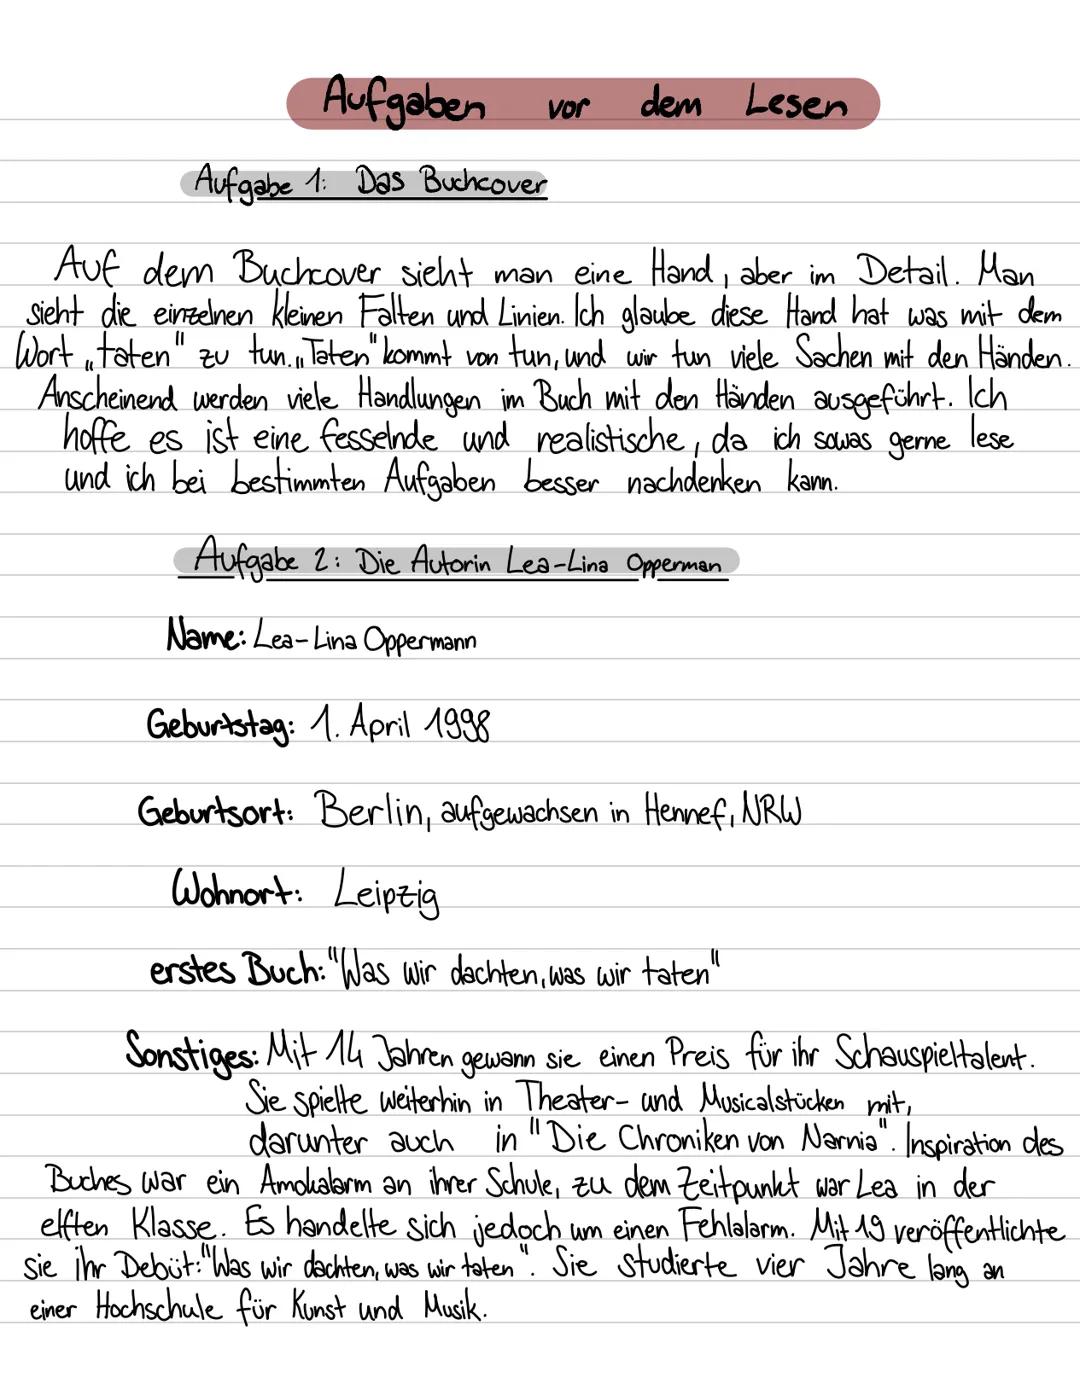 Aufgaben vor dem Lesen
Aufgabe 1: Das Buchcover
Auf dem Buchcover sieht man eine Hand, aber im Detail. Man
sieht die einzelnen kleinen Falten und Linien. Ich glaube diese Hand hat was mit dem
Wort „taten" zu tun. „Taten" kommt von tun, und wir tun viele Sachen mit den Händen.
Anscheinend werden viele Handlungen im Buch mit den Händen ausgeführt. Ich
hoffe es ist eine fesselnde und realistische, da ich sowas gerne lese
und ich bei bestimmten Aufgaben besser nachdenken kann.
Aufgabe 2: Die Autorin Lea-Lina Opperman
Name: Lea-Lina Oppermann
Geburtstag: 1. April 1998
Geburtsort: Berlin, aufgewachsen in Hennef, NRW
Wohnort: Leipzig
erstes Buch: "Was wir dachten, was wir taten"
Sonstiges: Mit 14 Jahren gewann sie einen Preis für ihr Schauspieltalent.
Sie spielte weiterhin in Theater- und Musicalstücken mit,
darunter auch in "Die Chroniken von Narnia". Inspiration des
Buches war ein Amokalarm an ihrer Schule, zu dem Zeitpunkt war Lea in der
elften Klasse. Es handelte sich jedoch um einen Fehlalarm. Mit 19 veröffentlichte
sie ihr Debüt: "Was wir dachten, was wir taten". Sie studierte vier Jahre lang an
einer Hochschule für Kunst und Musik.